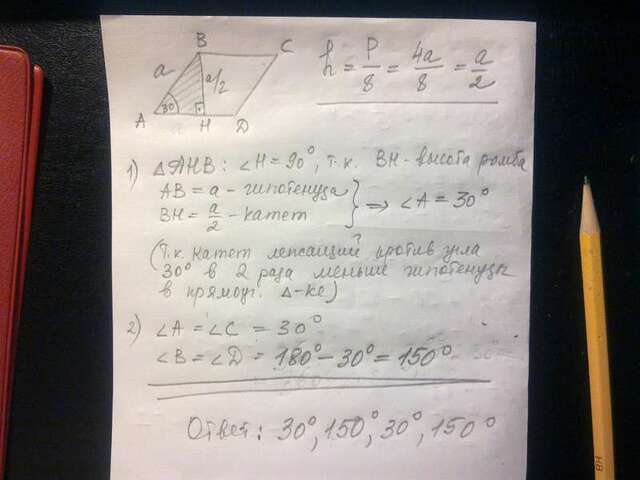 B
C
a
a/2
30
A
H
D
h = P/8 = 4a/8 = a/2
1) △AHB: ∠H=90°, т.к. BH - высота ромба
AB = a - гипотенуза
BH = a/2 - катет
} ⇒ ∠A = 30°
(т.к. катет лежащий против угла
30° в 2 раза меньше гипотенузы
в прямоуг. △-ке)
2) ∠A = ∠C = 30°
∠B = ∠D = 180° - 30° = 150°
Ответ: 30°, 150°, 30°, 150°
HB